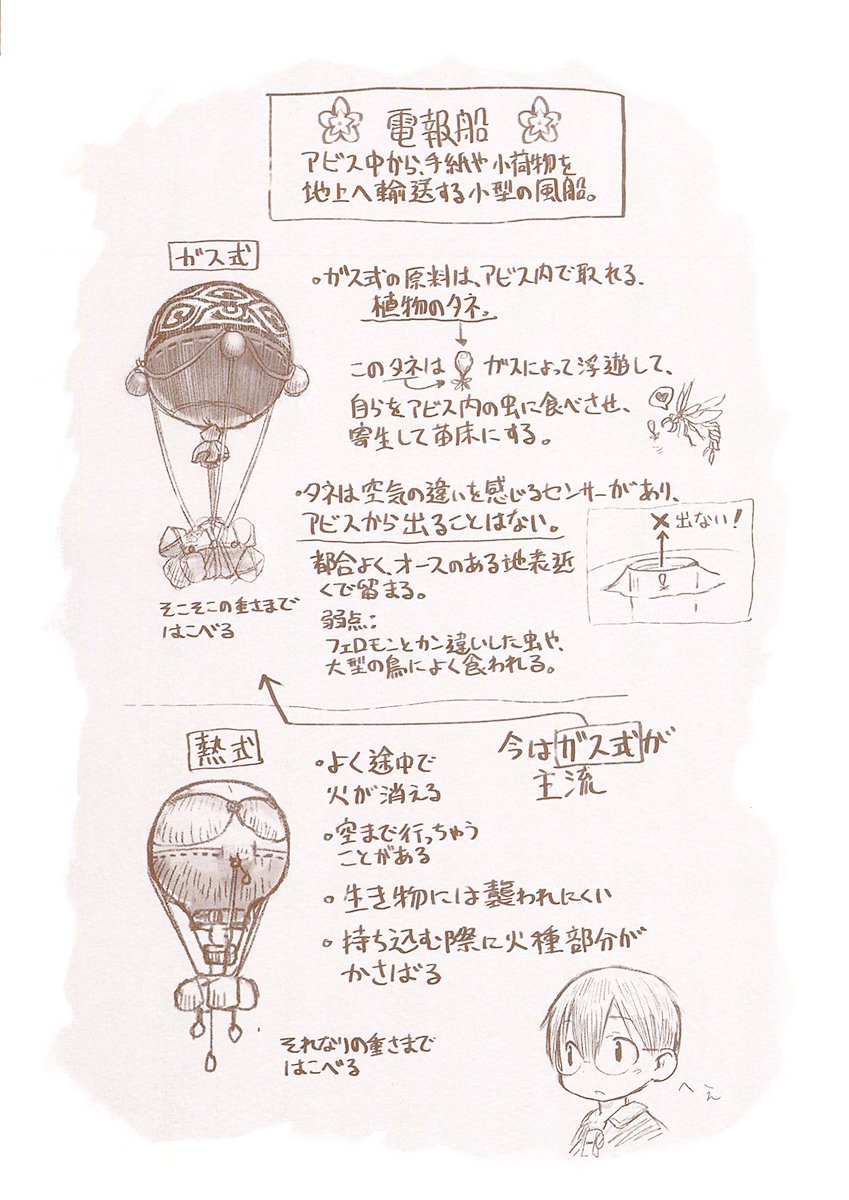 電報船
アビス中から、手紙や小荷物を
地上へ輸送する小型の風船。
ガス式
・ガス式の原料は、アビス内で取れる、
植物のタネ。
このタネは ガスによって浮遊して、
自らをアビス内の虫に食べさせ、
寄生して苗床にする。
・タネは空気の違いを感じるセンサーがあり、
アビスから出ることはない。
×出ない!
都合よく、オースのある地表近
くで留まる。
そこそこの重さまで
はこべる
弱点:
フェロモンとカン違いした虫や、
大型の鳥によく食われる。
今はガス式が
主流
熱式
・よく途中で
火が消える
・空まで行っちゃう
ことがある
・生き物には襲われにくい
・持ち込む際に火種部分が
かさばる
それなりの重さまで
はこべる
へぇ